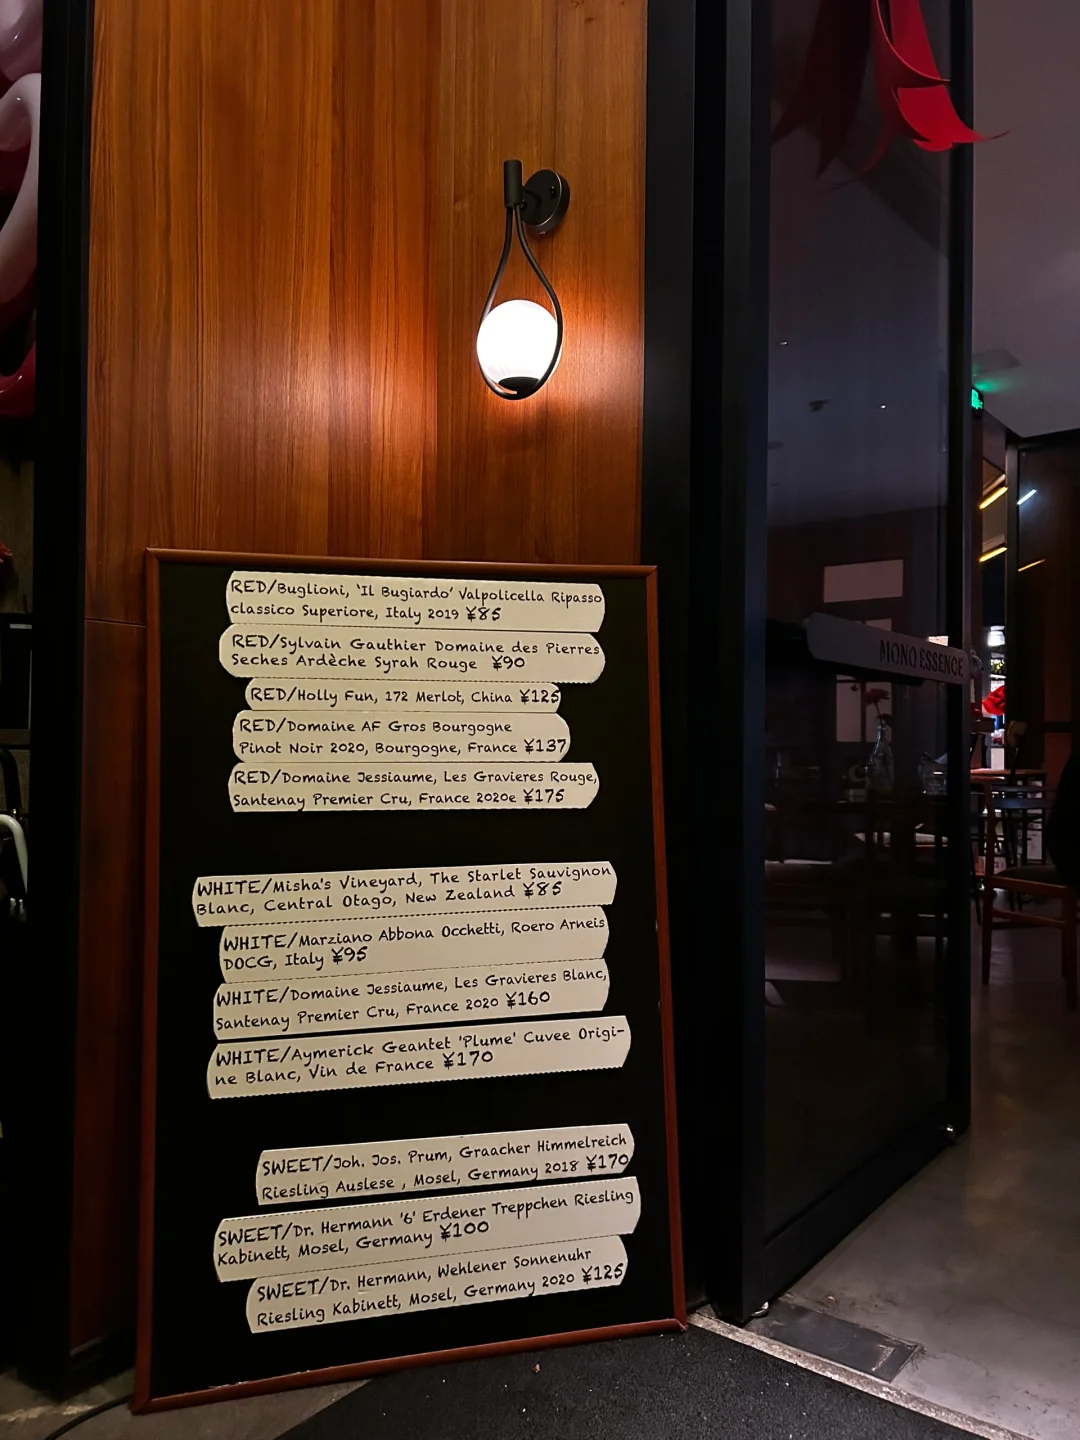 RED/Buglioni, 'Il Bugiardo' Valpolicella Ripasso
classico Superiore, Italy 2019 ¥85
RED/Sylvain Gauthier Domaine des Pierres
Seches Ardèche Syrah Rouge ¥90
RED/Holly Fun, 172 Merlot, China ¥125
RED/Domaine AF Gros Bourgogne
Pinot Noir 2020, Bourgogne, France ¥137
RED/Domaine Jessiaume, Les Gravieres Rouge,
Santenay Premier Cru, France 2020e ¥175
WHITE/Misha's Vineyard, The Starlet Sauvignon
Blanc, Central Otago, New Zealand ¥85
WHITE/Marziano Abbona Occhetti, Roero Arneis
DOCG, Italy ¥95
WHITE/Domaine Jessiaume, Les Gravieres Blanc,
Santenay Premier Cru, France 2020 ¥160
WHITE/Aymerick Geantet 'Plume' Cuvee Origi-
ne Blanc, Vin de France ¥170
SWEET/Joh. Jos. Prum, Graacher Himmelreich
Riesling Auslese , Mosel, Germany 2018 ¥170
SWEET/Dr. Hermann '6' Erdener Treppchen Riesling
Kabinett, Mosel, Germany ¥100
SWEET/Dr. Hermann, Wehlener Sonnenuhr
Riesling Kabinett, Mosel, Germany 2020 ¥125
MONO ESSENCE